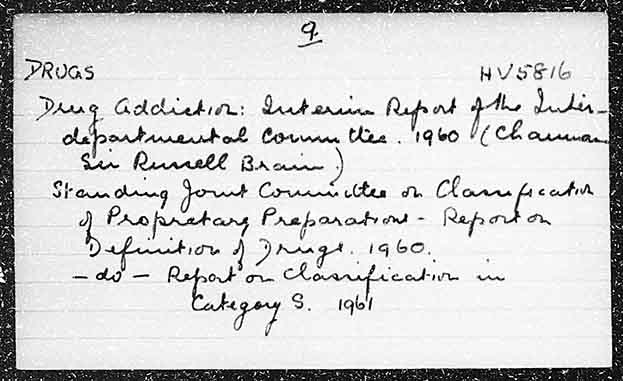 9.
DRUGS HV5816
Drug Addiction: Interim Report of the Inter-
departmental Committee. 1960 (Chairman
Sir Russell Brain)
Standing Joint Committee on Classification
of Proprietary Preparations - Report on
Definition of Drugs. 1960.
- do - Report on Classification in
Category S. 1961